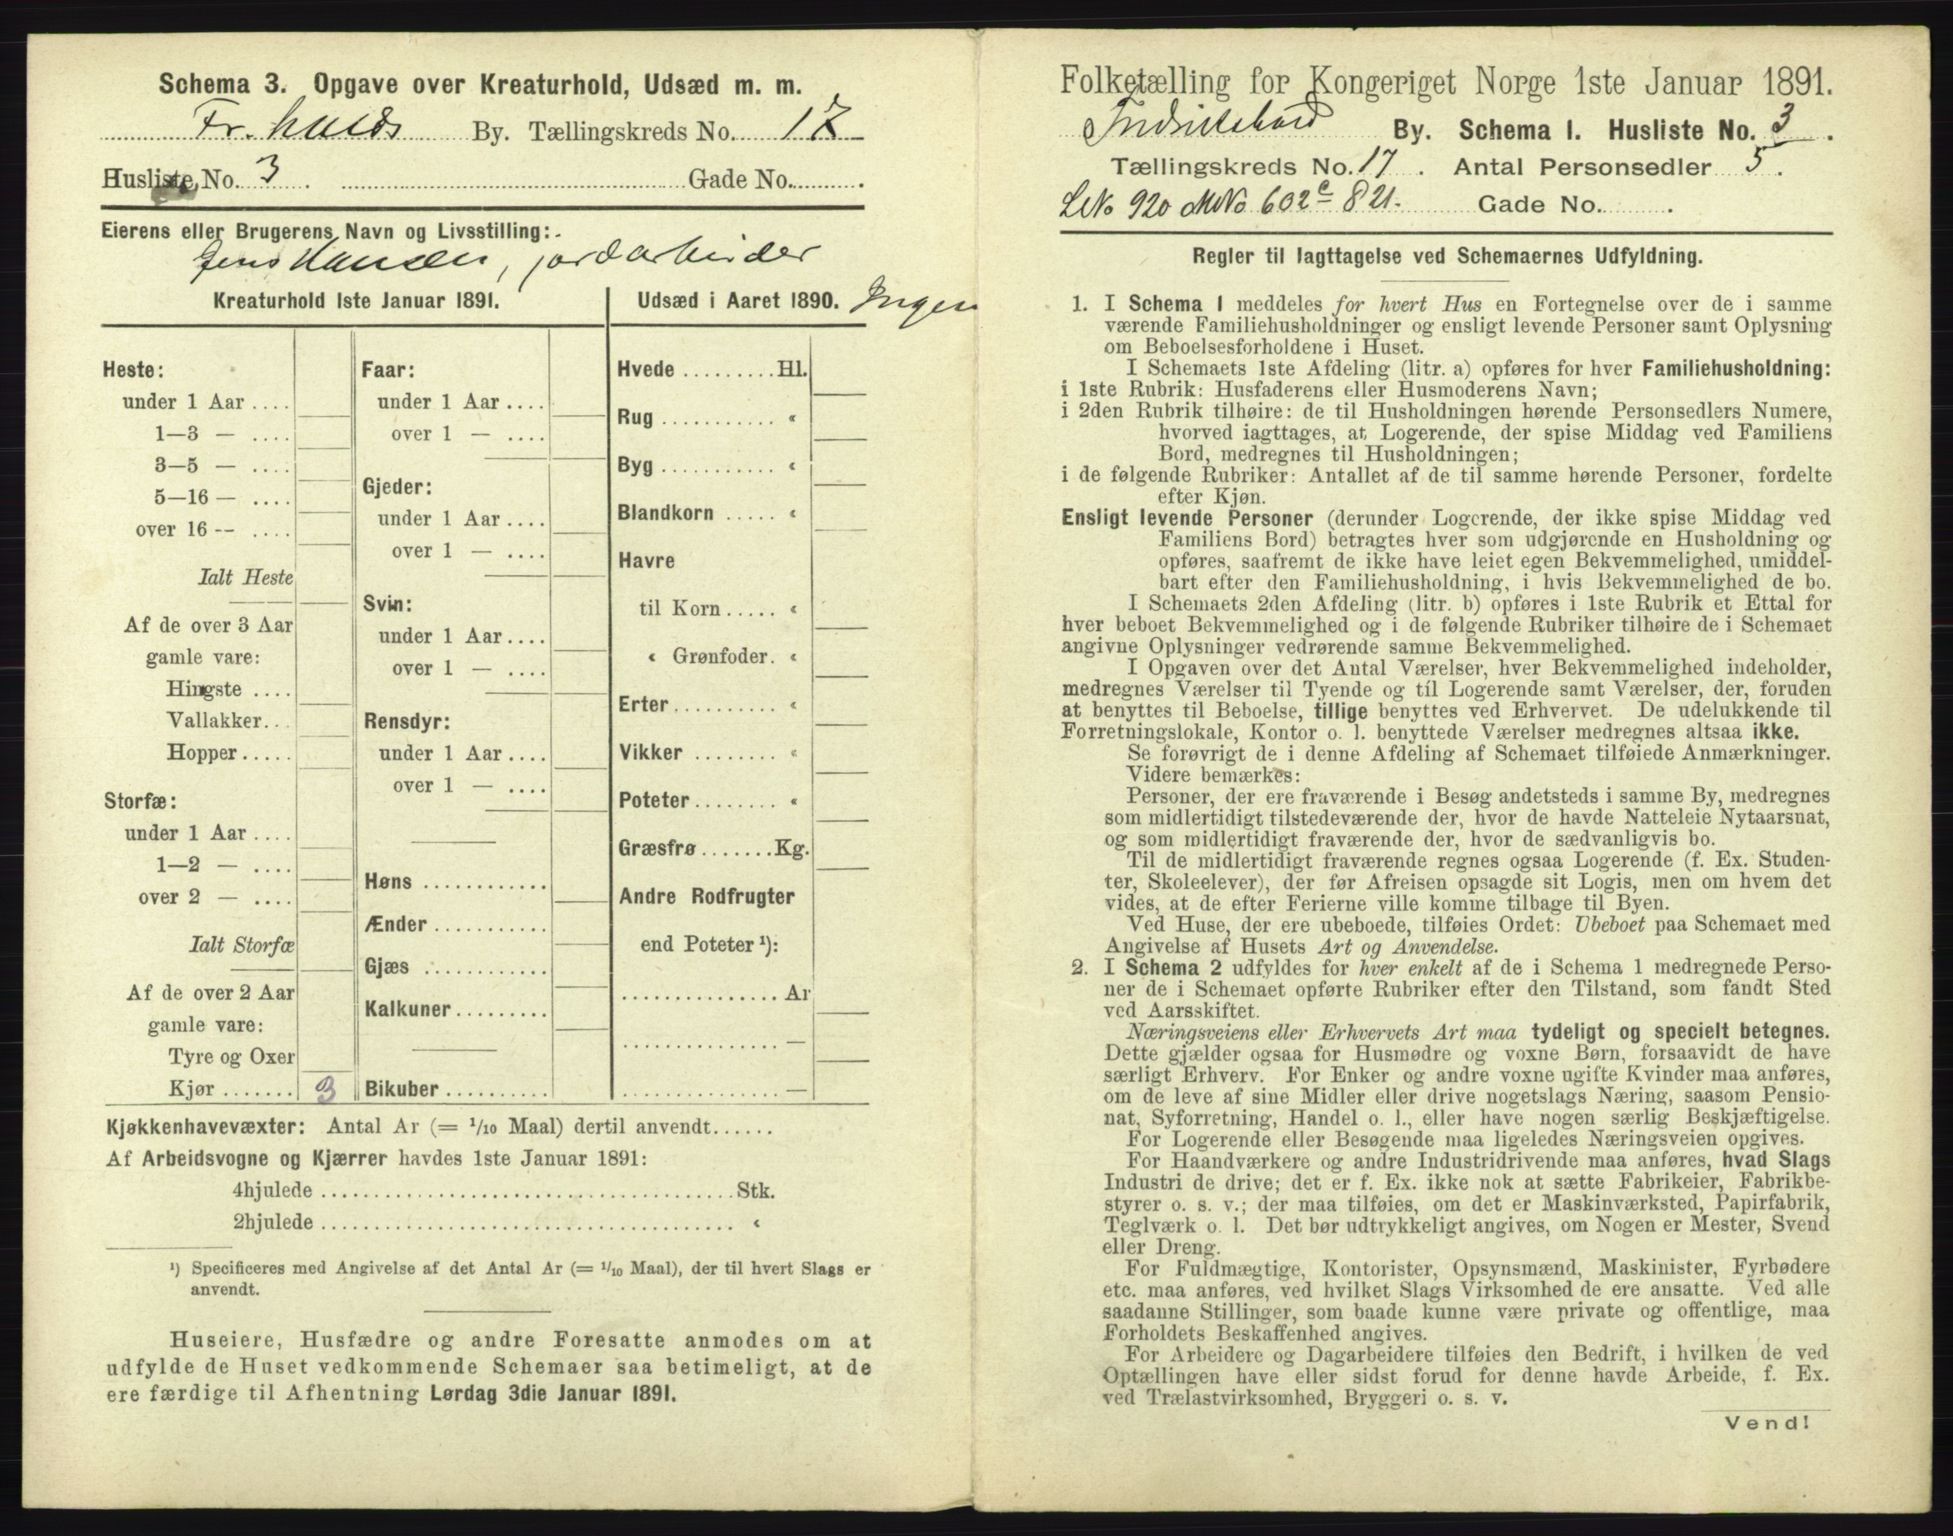 Schema 3. Opgave over Kreaturhold, Udsæd m. m.
Fr.halds By. Tællingskreds No. 17
Husliste No. 3 . Gade No. .
Eierens eller Brugerens Navn og Livsstilling:
Jens Hansen, jordarbeider
Kreaturhold 1ste Januar 1891.
Udsæd i Aaret 1890. Ingen
Heste:
under 1 Aar ....
1—3 — ....
3—5 — ....
5—16 — ....
over 16 -- ....
Ialt Heste
Af de over 3 Aar
gamle vare:
Hingste ....
Vallakker...
Hopper.....
Storfæ:
under 1 Aar ....
1—2 — ....
over 2 — ....
Ialt Storfæ
Af de over 2 Aar
gamle vare:
Tyre og Oxer
Kjør ....... 3
Faar:
under 1 Aar ....
over 1 — ....
Gjeder:
under 1 Aar ....
over 1 — ....
Svin:
under 1 Aar ....
over 1 — ....
Rensdyr:
under 1 Aar ....
over 1 — ....
Høns ............
Ænder ...........
Gjæs ............
Kalkuner.........
Bikuber ..........
Hvede .........Hl.
Rug ........... «
Byg ........... «
Blandkorn ..... «
Havre
til Korn ..... «
« Grønfoder. «
Erter.......... «
Vikker ........ «
Poteter........ «
Græsfrø.......Kg.
Andre Rodfrugter
end Poteter ¹):
............... Ar
............... —
............... —
Kjøkkenhavevæxter: Antal Ar (= 1/10 Maal) dertil anvendt......
Af Arbeidsvogne og Kjærrer havdes 1ste Januar 1891:
4hjulede ....................................... Stk.
2hjulede ....................................... «
¹) Specificeres med Angivelse af det Antal Ar (= 1/10 Maal), der til hvert Slags er
anvendt.
Huseiere, Husfædre og andre Foresatte anmodes om at
udfylde de Huset vedkommende Schemaer saa betimeligt, at de
ere færdige til Afhentning Lørdag 3die Januar 1891.
Folketælling for Kongeriget Norge 1ste Januar 1891.
By. Schema I. Husliste No. 3 .
Tællingskreds No. 17 . Antal Personsedler 5 .
LNo 920 MNo 602c 821. Gade No. .
Regler til Iagttagelse ved Schemaernes Udfyldning.
1. I Schema I meddeles for hvert Hus en Fortegnelse over de i samme
værende Familiehusholdninger og ensligt levende Personer samt Oplysning
om Beboelsesforholdene i Huset.
I Schemaets 1ste Afdeling (litr. a) opføres for hver Familiehusholdning:
i 1ste Rubrik: Husfaderens eller Husmoderens Navn;
i 2den Rubrik tilhøire: de til Husholdningen hørende Personsedlers Numere,
hvorved iagttages, at Logerende, der spise Middag ved Familiens
Bord, medregnes til Husholdningen;
i de følgende Rubriker: Antallet af de til samme hørende Personer, fordelte
efter Kjøn.
Ensligt levende Personer (derunder Logerende, der ikke spise Middag ved
Familiens Bord) betragtes hver som udgjørende en Husholdning og
opføres, saafremt de ikke have leiet egen Bekvemmelighed, umiddel-
bart efter den Familiehusholdning, i hvis Bekvemmelighed de bo.
I Schemaets 2den Afdeling (litr. b) opføres i 1ste Rubrik et Ettal for
hver beboet Bekvemmelighed og i de følgende Rubriker tilhøire de i Schemaet
angivne Oplysninger vedrørende samme Bekvemmelighed.
I Opgaven over det Antal Værelser, hver Bekvemmelighed indeholder,
medregnes Værelser til Tyende og til Logerende samt Værelser, der, foruden
at benyttes til Beboelse, tillige benyttes ved Erhvervet. De udelukkende til
Forretningslokale, Kontor o. l. benyttede Værelser medregnes altsaa ikke.
Se forøvrigt de i denne Afdeling af Schemaet tilføiede Anmærkninger.
Videre bemærkes:
Personer, der ere fraværende i Besøg andetsteds i samme By, medregnes
som midlertidigt tilstedeværende der, hvor de havde Natteleie Nytaarsnat,
og som midlertidigt fraværende der, hvor de sædvanligvis bo.
Til de midlertidigt fraværende regnes ogsaa Logerende (f. Ex. Studen-
ter, Skoleelever), der før Afreisen opsagde sit Logis, men om hvem det
vides, at de efter Ferierne ville komme tilbage til Byen.
Ved Huse, der ere ubeboede, tilføies Ordet: Ubeboet paa Schemaet med
Angivelse af Husets Art og Anvendelse.
2. I Schema 2 udfyldes for hver enkelt af de i Schema 1 medregnede Perso-
ner de i Schemaet opførte Rubriker efter den Tilstand, som fandt Sted
ved Aarsskiftet.
Næringsveiens eller Erhvervets Art maa tydeligt og specielt betegnes.
Dette gjælder ogsaa for Husmødre og voxne Børn, forsaavidt de have
særligt Erhverv. For Enker og andre voxne ugifte Kvinder maa anføres,
om de leve af sine Midler eller drive nogetslags Næring, saasom Pensio-
nat, Syforretning, Handel o. l., eller have nogen særlig Beskjæftigelse.
For Logerende eller Besøgende maa ligeledes Næringsveien opgives.
For Haandværkere og andre Industridrivende maa anføres, hvad Slags
Industri de drive; det er f. Ex. ikke nok at sætte Fabrikeier, Fabrikbe-
styrer o. s. v.; der maa tilføies, om det er Maskinværksted, Papirfabrik,
Teglværk o. l. Det bør udtrykkeligt angives, om Nogen er Mester, Svend
eller Dreng.
For Fuldmægtige, Kontorister, Opsynsmænd, Maskinister, Fyrbødere
etc. maa anføres, ved hvilket Slags Virksomhed de ere ansatte. Ved alle
saadanne Stillinger, som baade kunne være private og offentlige, maa
Forholdets Beskaffenhed angives.
For Arbeidere og Dagarbeidere tilføies den Bedrift, i hvilken de ved
Optællingen have eller sidst forud for denne havde Arbeide, f. Ex.
ved Trælastvirksomhed, Bryggeri o. s. v.
Vend!